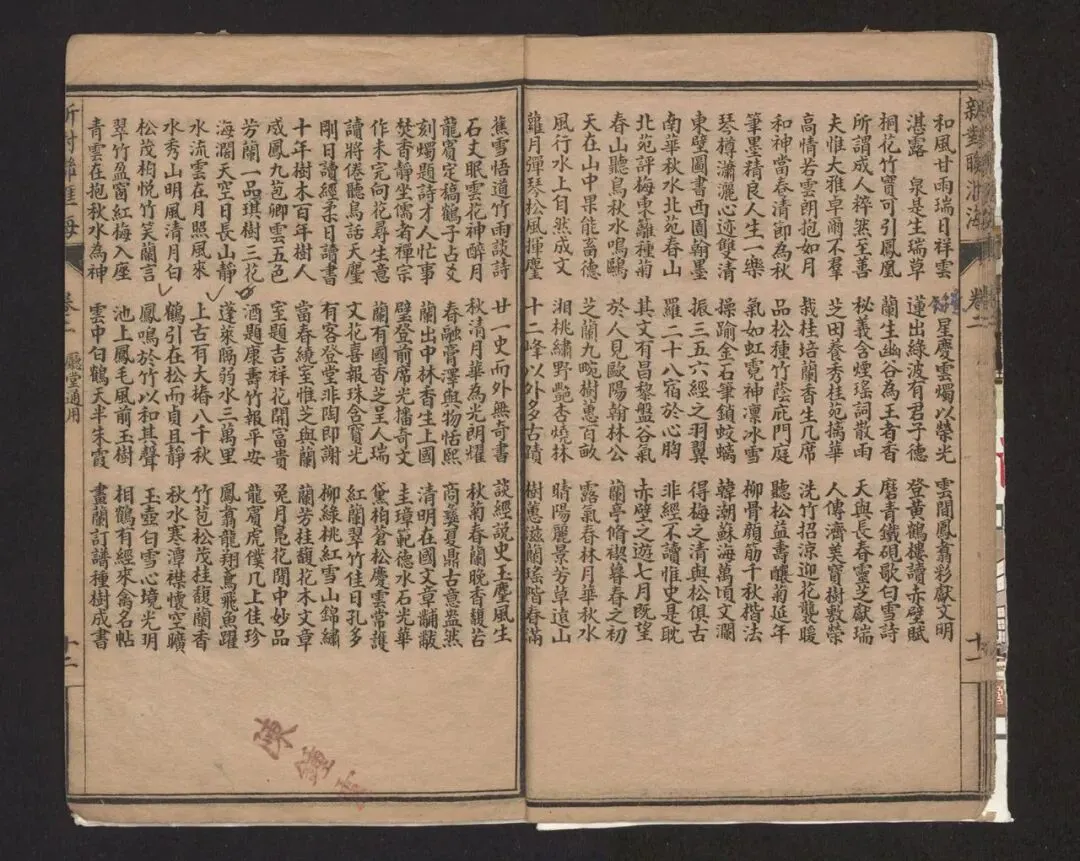 新對聯滙海 卷二 十一
和風甘雨瑞日祥雲
湛露 泉是生瑞草
桐花竹實可引鳳凰
所謂成人粹然至善
夫惟大雅卓爾不羣
高情若雲朗抱如月
和神當春清節為秋
筆墨精良人生一樂
琴樽瀟灑心迹雙清
東壁圖書西園翰墨
南華秋水北苑春山
北苑評梅東離種菊
春山聽鳥秋水鳴鷗
天在山中果能畜德
風行水上自然成文
蘿月彈琴松風揮麈
星慶雲燭以榮光
蓮出綠波有君子德
蘭生幽谷為王者香
秘義含煙瑤詞散雨
芝田養秀桂苑摛華
栽桂培蘭香生几席
品松種竹蔭庇門庭
氣如虹霓神凜冰雪
操踰金石筆鎖蛟螭
振三五六經之羽翼
羅二十八宿於心胸
其文有昌黎盤谷氣
於人見歐陽翰林公
芝蘭九畹樹蕙百畝
湘桃繡野艷杏燒林
十二峰以外多古蹟
雲開鳳翥彩獻文明
登黃鶴樓讀赤壁賦
磨青鐵硯歌白雪詩
天與長春靈芝獻瑞
人傳濟美寶樹敷榮
聽松益壽釀菊延年
洗竹招涼迎花襲暖
柳骨顏筋千秋楷法
韓潮蘇海萬頃文瀾
得梅之清與松俱古
非經不讀惟史是耽
赤壁之遊七月既望
蘭亭脩禊暮春之初
露氣春林月華秋水
晴陽麗景芳草遠山
樹蕙滋蘭瑤階春滿
蕉雪悟道竹雨談詩
石丈眠雲花神醉月
龍賓定稿鶴子占爻
刻燭題詩才人忙事
焚香靜坐儒者禪宗
作未完句花尋生意
讀將倦聽鳥話天麈
剛日讀經柔日讀書
十年樹木百年樹人
成鳳九苞卿雲五色
芳蘭一品琪樹三花
海濶天空日長山靜
水流雲在月照風來
水秀山明風清月白
松茂柏悅竹笑蘭言
翠竹盈窗紅梅入座
青雲在抱秋水為神
廿一史而外無奇書
秋清月華為光朗耀
春融膏澤與物恬熙
蘭出中林香生上國
壁登前席光播奇文
蘭有國香芝呈人瑞
文花喜報珠含寶光
有客登堂非陶即謝
當春繞室惟芝與蘭
室題吉祥花開富貴
酒題康壽竹報平安
蓬萊隔弱水三萬里
上古有大椿八千秋
鶴引在松而貞且靜
鳳鳴於竹以和其聲
池上鳳毛風前玉樹
雲中白鶴天半朱霞
談經說史玉麈風生
秋菊春蘭晚香馥若
商彝夏鼎古意盎然
清明在國文章黼黻
圭璋範德水石光華
黛柏倉松慶雲常護
紅蘭翠竹佳日孔多
柳綠桃紅雪山錦繡
蘭芳桂馥花木文章
兔月鳧花閒中妙品
龍賓虎僕几上佳珍
鳳翥龍翔鳶飛魚躍
竹苞松茂桂馥蘭香
秋水寒潭襟懷空曠
玉壺白雪心境光明
相鶴有經來禽名帖
畫蘭訂譜種樹成書
新對聯滙海 卷二 廳堂通用 十二